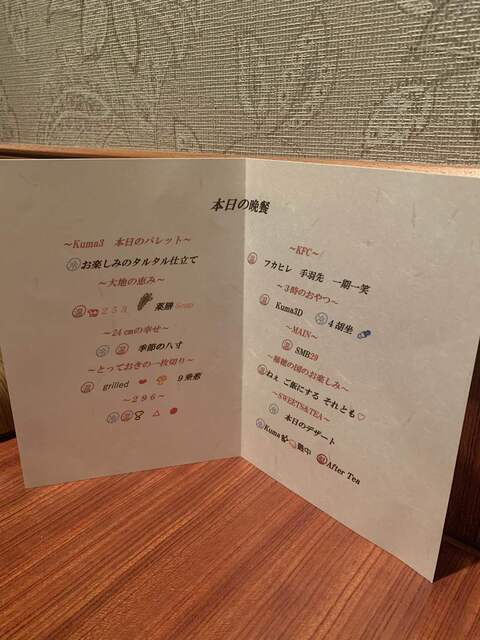 本日の晩餐
～Kuma3 本日のパレット～
冷 お楽しみのタルタル仕立て
～大地の恵み～
温 253 薬膳Soup
～24㎝の幸せ～
冷 温 季節の八寸
～とっておきの一枚切り～
温 grilled ９乗葱
～２９６～
冷 温
～KFC～
温 フカヒレ 手羽先 一期一笑
～３時のおやつ～
温 Kuma3D 冷 4胡坐
～MAIN～
温 SMB29
～瑞穂の国のお楽しみ～
温 ねぇ ご飯にする それとも♡
～SWEETS&TEA～
冷 本日のデザート
冷 Kuma 熱中 温 After Tea